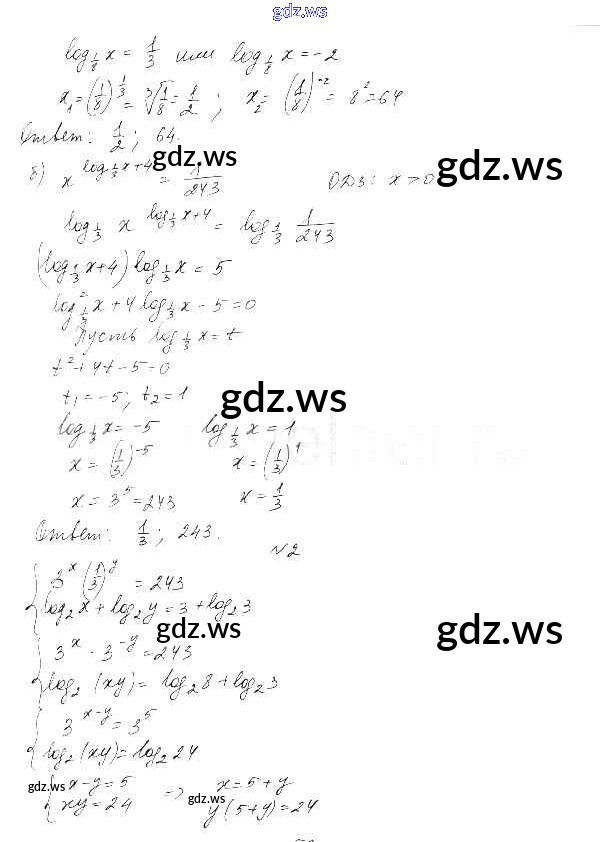 gdz.ws
log_{1/8} x = 1/3 или log_{1/8} x = -2
x₁ = (1/8)^{1/3} = ∛(1/8) = 1/2 ; x₂ = (1/8)^{-2} = 8² = 64
Ответ: 1/2 ; 64.
gdz.ws
gdz.ws
б) x^{log_{1/3} x + 4} = 1/243 ОДЗ: x > 0
log_{1/3} x^{log_{1/3} x + 4} = log_{1/3} 1/243
(log_{1/3} x + 4) log_{1/3} x = 5
log²_{1/3} x + 4 log_{1/3} x - 5 = 0
Пусть log_{1/3} x = t
t² + 4t - 5 = 0
t₁ = -5; t₂ = 1
gdz.ws
log_{1/3} x = -5 log_{1/3} x = 1
x = (1/3)^{-5} x = (1/3)^1
x = 3⁵ = 243 x = 1/3
Ответ: 1/3 ; 243.
№2
{ 3^x (1/3)^y = 243
log₂ x + log₂ y = 3 + log₂ 3
gdz.ws
gdz.ws
{ 3^x · 3^{-y} = 243
log₂ (xy) = log₂ 8 + log₂ 3
{ 3^{x-y} = 3⁵
log₂ (xy) = log₂ 24
gdz.ws
gdz.ws
{ x - y = 5 => x = 5 + y
xy = 24 y(5+y) = 24